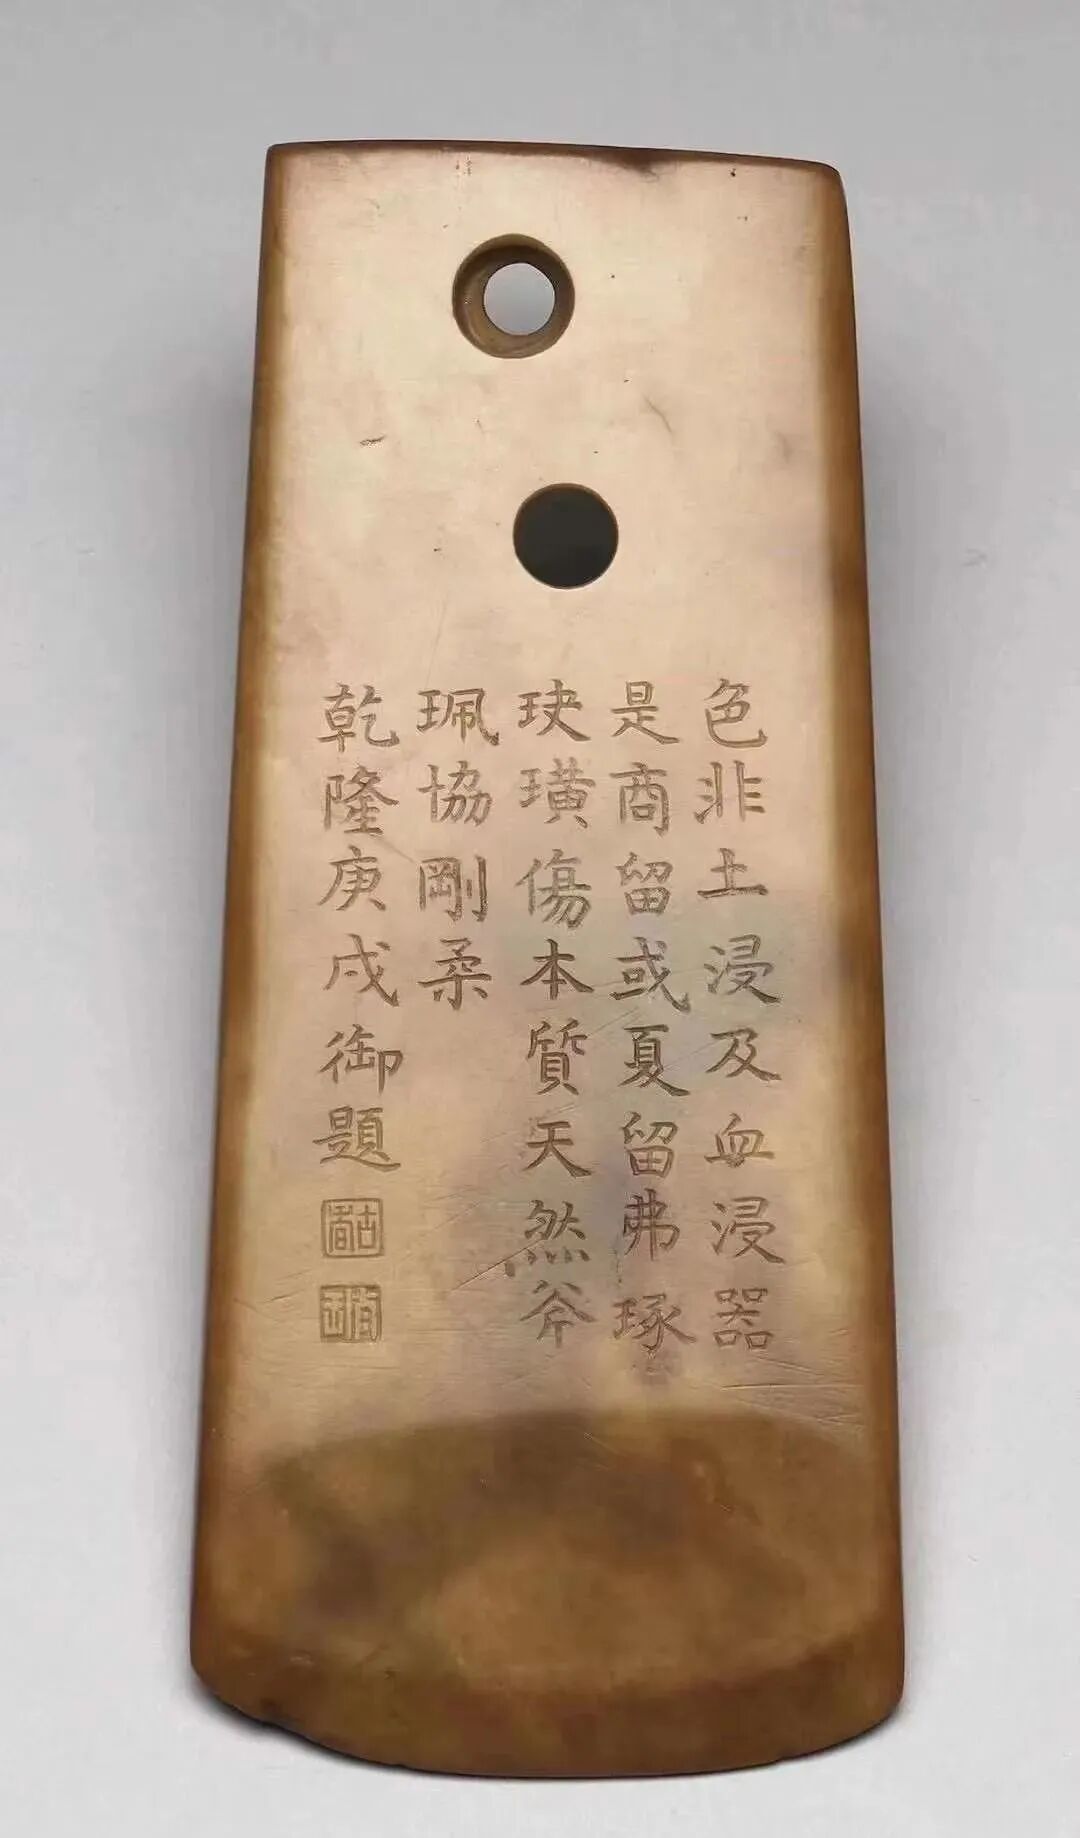 色非土浸及血浸器
是商留或夏留弗琢
玦璜傷本質天然斧
珮協剛柔
乾隆庚戌御題